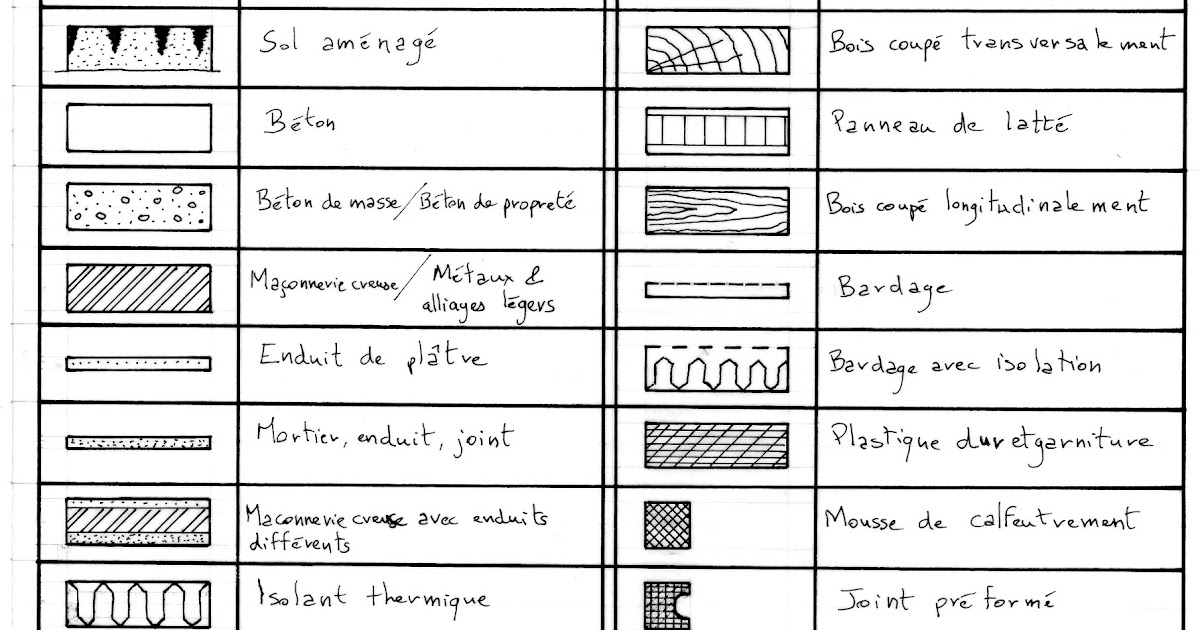 Sol aménagé
Béton
Béton de masse/Béton de propreté
Maçonnerie creuse/Métaux &
alliages légers
Enduit de plâtre
Mortier, enduit, joint
Maconnerie creuse avec enduits
différents
Isolant thermique
Bois coupé transversalement
Panneau de latté
Bois coupé longitudinalement
Bardage
Bardage avec isolation
Plastique dur et garniture
Mousse de calfeutrement
Joint préformé